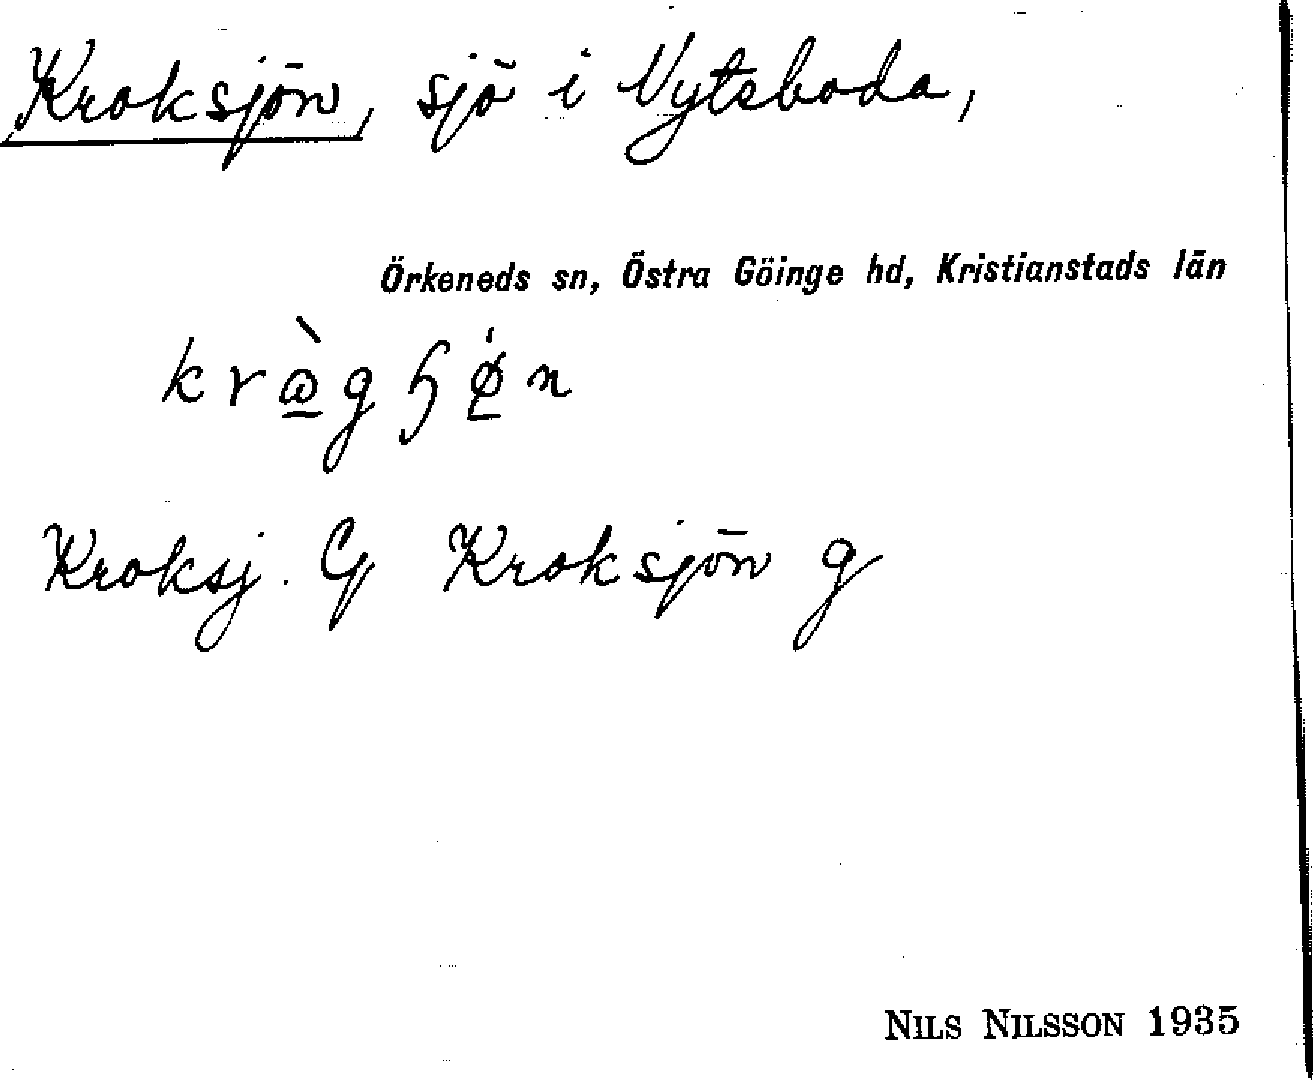 Kroksjön, sjö i Vytsboda,
Örkeneds sn, Östra Göinge hd, Kristianstads län
Kroksj. G Kroksjön g
NILS NILSSON 1935